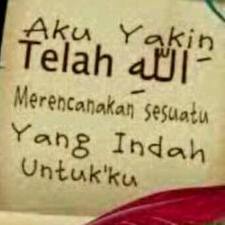 Aku Yakin
Telah الله
Merencanakan sesuatu
Yang Indah
Untuk'ku